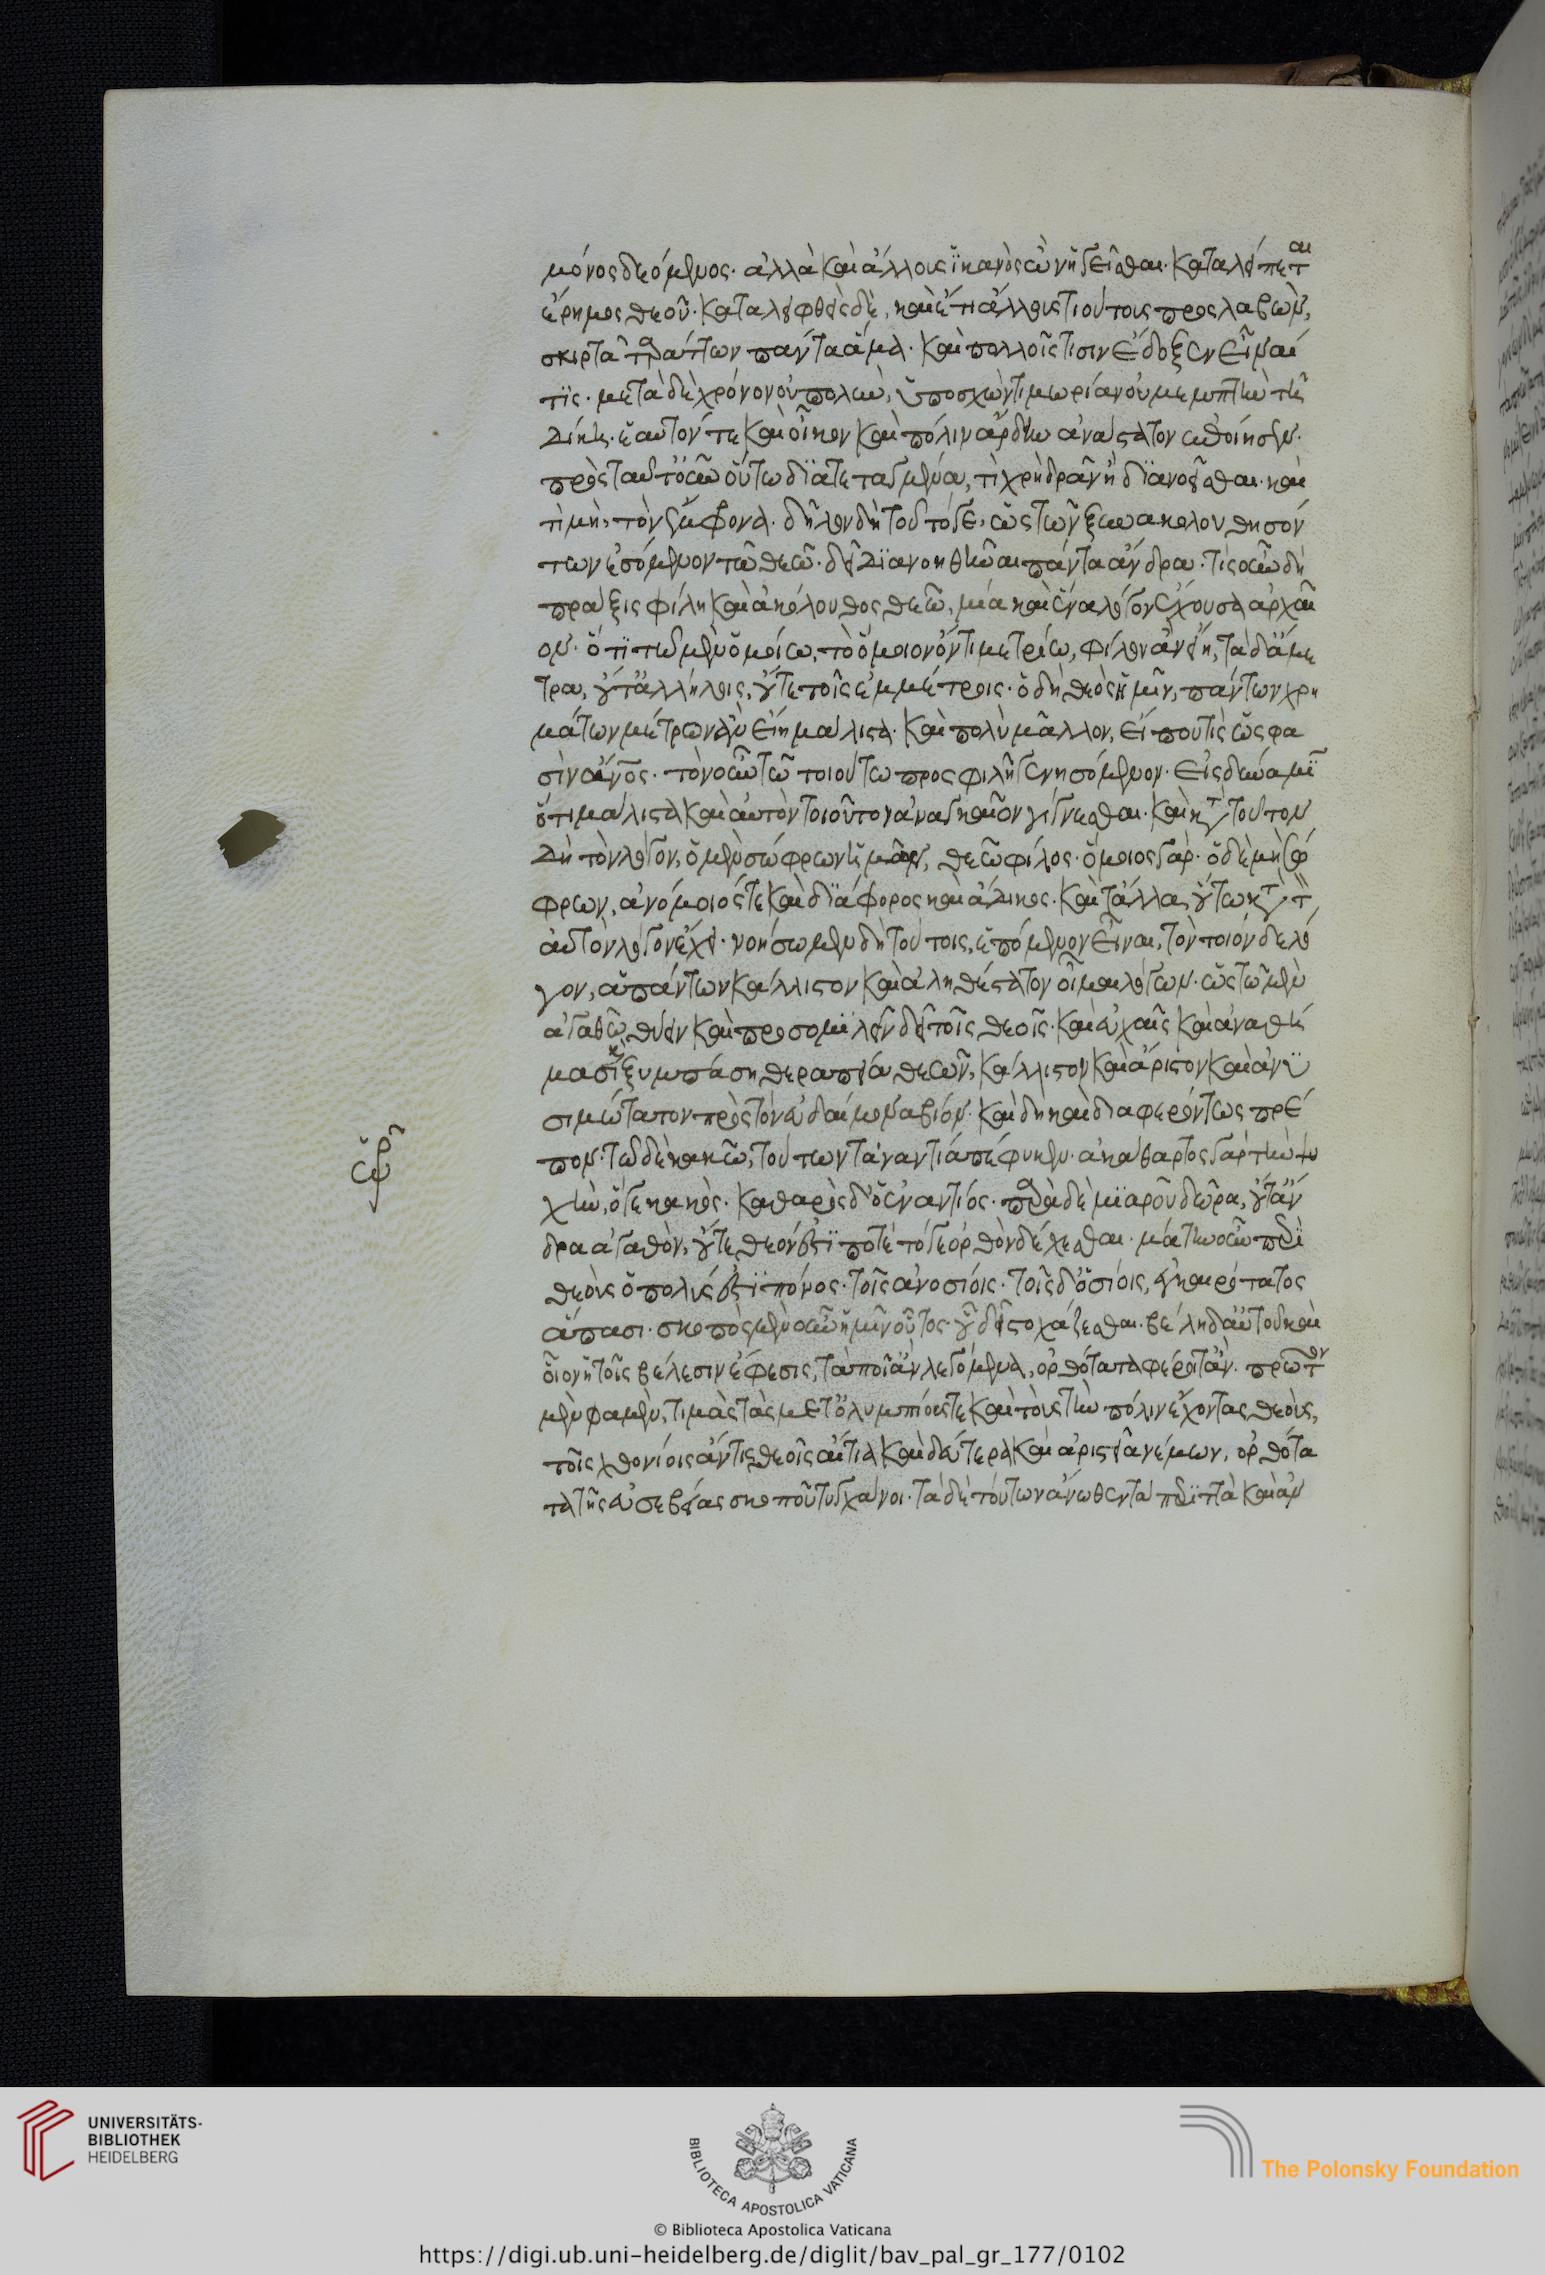 μόνος δεόμενος. ἀλλὰ καὶ ἄλλοις ἱκανὸς ὢν ἡγεῖσθαι. καταλείπεται
ἔρημος θεοῦ. καταλειφθεὶς δὲ, καὶ ἔτι ἄλλους τιούτοις προςλαβὼν,
σκιρτᾶ ταράττων πάντα ἅμα. καὶ πολλοῖς τισιν ἔδοξεν εἶναί
τις. μετὰ δὲ χρόνον οὐ πολὺν, ὑποσχὼν τιμωρίαν οὐ μεμπτὴν τῆ
δίκη. ἑαυτόν τε καὶ οἶκον καὶ πόλιν ἄρδην ἀνάστατον ἐποίησεν.
πρὸς ταῦτ' οὖν οὕτω διατεταγμένα, τί χρὴ δρᾶν ἢ διανοεῖσθαι. καὶ
τί μὴ, τὸν ἔμφρονα. δῆλον δὴ τοῦτό γε, ὡς τῶν ξυνακολουθησόν
των ἐσόμενον τῶ θεῶ. δεῖ διανοηθῆναι πάντα ἄνδρα. τίς οὖν δὴ
πρᾶξις φίλη καὶ ἀκόλουθος θεῶ, μία καὶ ἕνα λόγον ἔχουσα ἀρχαῖ
ον. ὅτι τῶ μὲν ὁμοίω, τὸ ὅμοιον ὄντι μετρίω, φίλον ἂν εἴη, τὰ δ' ἄμε
τρα, οὔτ' ἀλλήλοις, οὔτε τοῖς ἐμμέτροις. ὁ δὴ θεὸς ἡμῖν, πάντων χρη
μάτων μέτρον ἂν εἴη μάλιστα. καὶ πολὺ μᾶλλον, εἴ πού τις ὥς φα
σιν ἄνος. τὸν οὖν τῶ τοιούτω προςφιλῆ γενησόμενον. εἰς δύναμϊ
ὅτι μάλιστα καὶ αὐτὸν τοιοῦτον ἀναγκαῖον γίγνεσθαι. καὶ κατὰ τοῦτον
δὴ τὸν λόγον, ὁ μὲν σώφρων ἡμῶν, θεῶ φίλος. ὅμοιος γάρ. ὁ δὲ μὴ σώ
φρων, ἀνόμοιός τε καὶ διάφορος καὶ ἄδικος. καὶ τἄλλα, οὕτω κατὰ τὸν
αὐτὸν λόγον ἔχει. νοήσωμεν δὴ τούτοις, ἑπόμενον εἶναι, τὸν τοιόνδε λό
γον, ἁπάντων κάλλιστον καὶ ἀληθέστατον οἶμαι λόγων. ὡς τῶ μὲν
ἀγαθῶ θύειν καὶ προσομιλεῖν δεῖ τοῖς θεοῖς. καὶ εὐχαῖς καὶ ἀναθή
μασι καὶ ξυμπάση θεραπεία θεῶν, κάλλιστον καὶ ἄριστον καὶ ἀνϋ
σιμώτατον πρὸς τὸν εὐδαίμονα βίον. καὶ δὴ καὶ διαφερόντως πρέ
πον. τῶ δὲ κακῶ, τούτων τἀναντία πέφυκεν. ἀκάθαρτος γὰρ τὴν ψυ
χὴν, ὅ γε κακός. καθαρὸς δ' ὁ ἐναντίος. παρὰ δὲ μιαροῦ δῶρα, οὔτ' ἄν
δρα ἀγαθὸν, οὔτε θεόν ἐστί ποτε τό γε ὀρθὸν δέχεσθαι. μάτην οὖν περὶ
θεοὺς ὁ πολύς ἐστι πόνος. τοῖς ἀνοσίοις. τοῖς δ' ὁσίοις, ἐγκαιρότατος
ἅπασι. σκοπὸς μὲν οὖν ἡμῖν οὗτος οὗ δεῖ στοχάζεσθαι. βέλη δ' αὐτοῦ καὶ
οἷον ἡ τοῖς βέλεσιν ἔφεσις, τὰ ποῖ' ἂν λεγόμενα, ὀρθότατα φέροιτ' ἄν. πρῶτον
μὲν φαμὲν, τιμὰς τὰς μετ' ὀλυμπίους τε καὶ τοὺς τὴν πόλιν ἔχοντας θεοὺς,
τοῖς χθονίοις ἄν τις θεοῖς ἄρτια καὶ δεύτερα καὶ ἀριστερὰ νέμων, ὀρθότα
τα τῆς εὐσεβείας σκοποῦ τυγχάνοι. τὰ δὲ τούτων ἄνωθεν τὰ περιττὰ καὶ ἀν
UNIVERSITÄTS-
BIBLIOTHEK
HEIDELBERG
BIBLIOTECA APOSTOLICA VATICANA
The Polonsky Foundation
© Biblioteca Apostolica Vaticana
https://digi.ub.uni-heidelberg.de/diglit/bav_pal_gr_177/0102